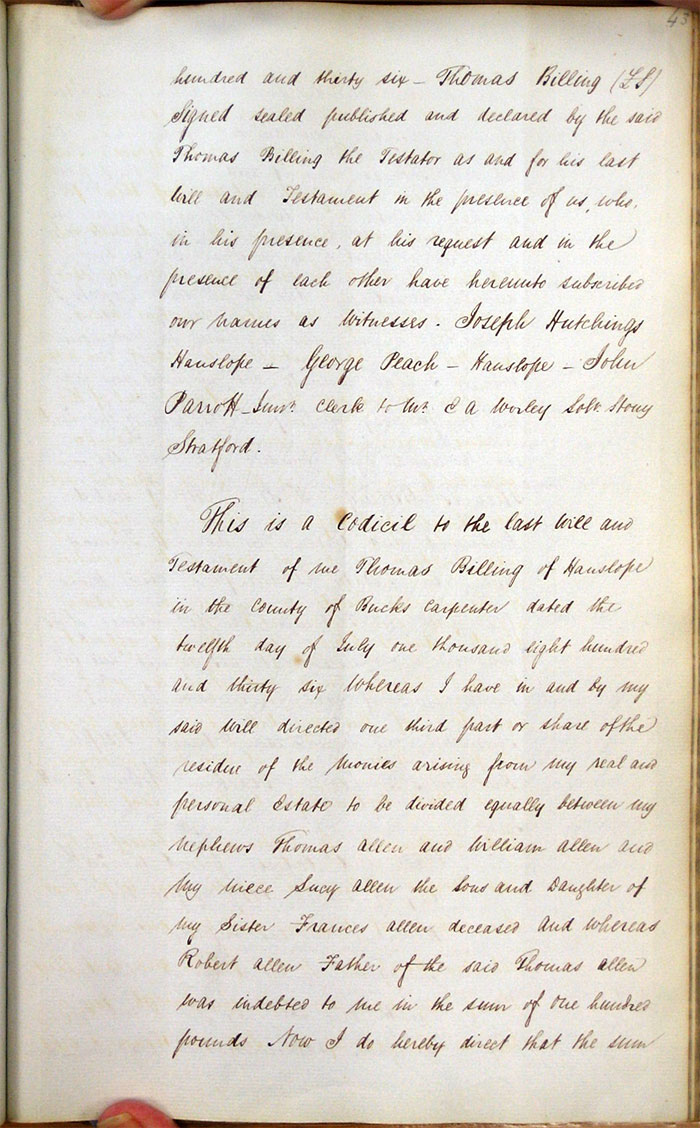 43
hundred and thirty six – Thomas Billing (LS)
Signed sealed published and declared by the said
Thomas Billing the Testator as and for his last
Will and Testament in the presence of us, who,
in his presence, at his request and in the
presence of each other have hereunto subscribed
our names as Witnesses. Joseph Hutchings
Hanslope – George Peach – Hanslope – John
Parrott Junr. Clerk to Mr. E A Worley Solr. Stony
Stratford.
This is a Codicil to the last Will and
Testament of me Thomas Billing of Hanslope
in the County of Bucks Carpenter dated the
twelfth day of July one thousand eight hundred
and thirty six Whereas I have in and by my
said Will directed one third part or share of the
residue of the Monies arising from my real and
personal Estate to be divided equally between my
Nephews Thomas Allen and William Allen and
my Niece Lucy Allen the Sons and Daughter of
my Sister Frances Allen deceased And whereas
Robert Allen Father of the said Thomas Allen
was indebted to me in the sum of one hundred
pounds Now I do hereby direct that the sum